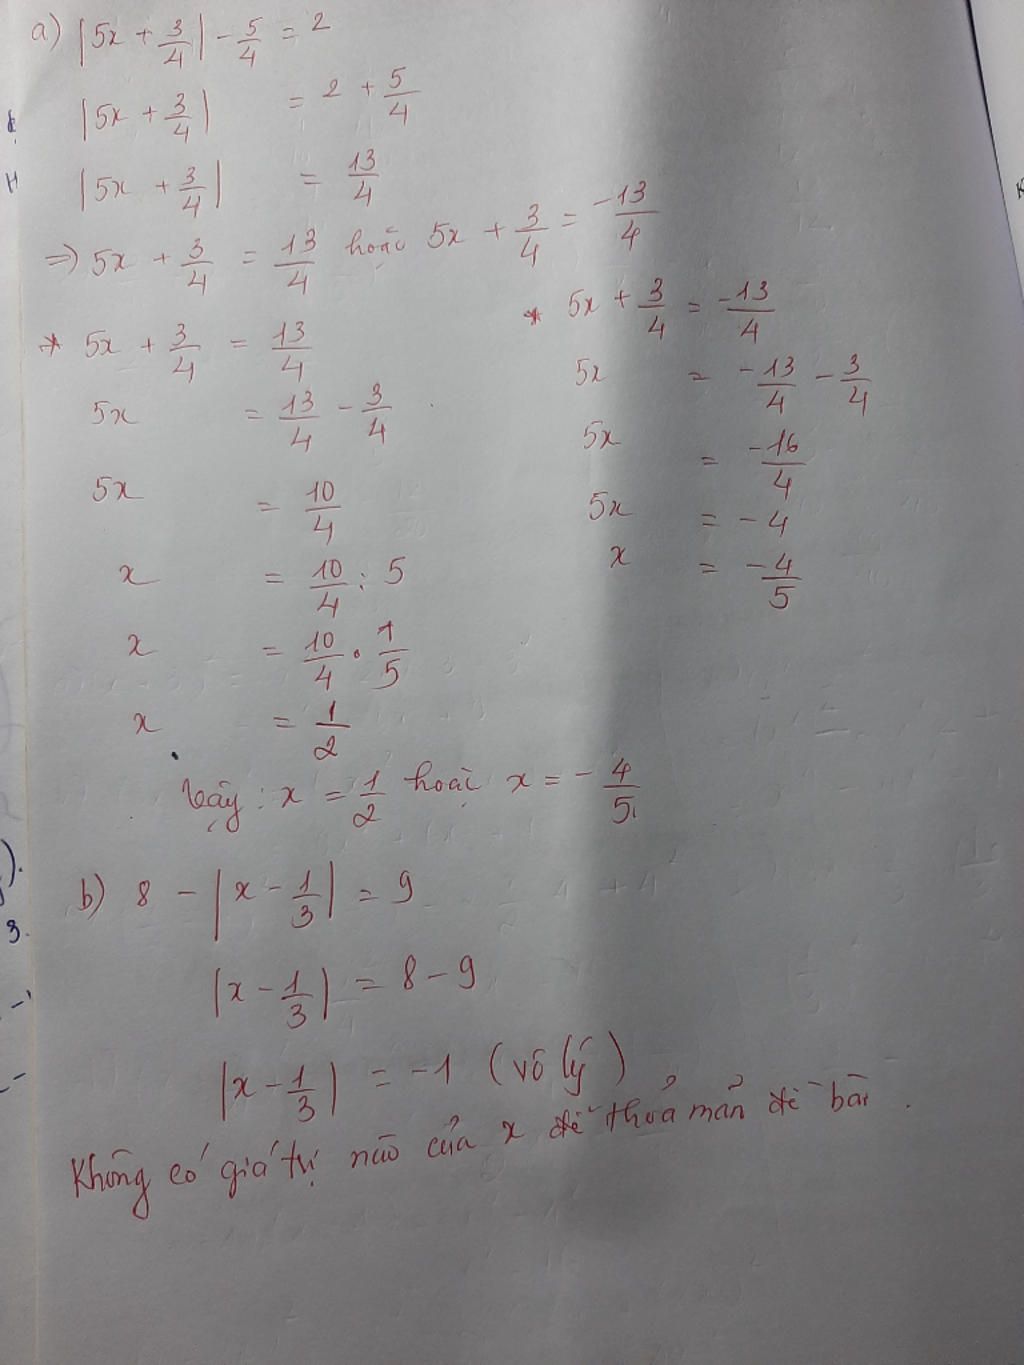 a) |5x + 3/4| - 5/4 = 2
|5x + 3/4| = 2 + 5/4
|5x + 3/4| = 13/4
=> 5x + 3/4 = 13/4 hoặc 5x + 3/4 = -13/4
* 5x + 3/4 = 13/4
5x = 13/4 - 3/4
5x = 10/4
x = 10/4 : 5
x = 10/4 . 1/5
x = 1/2
* 5x + 3/4 = -13/4
5x = -13/4 - 3/4
5x = -16/4
5x = -4
x = -4/5
Vậy : x = 1/2 hoặc x = -4/5
b) 8 - |x - 1/3| = 9
|x - 1/3| = 8 - 9
|x - 1/3| = -1 (vô lý)
Không có giá trị nào của x để thỏa mản đề bài.